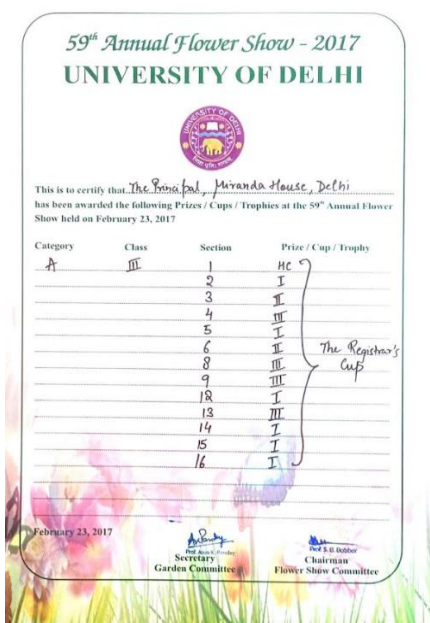 59th Annual Flower Show - 2017
UNIVERSITY OF DELHI
UNIVERSITY OF DELHI
This is to certify that The Principal, Miranda House, Delhi
has been awarded the following Prizes / Cups / Trophies at the 59th Annual Flower
Show held on February 23, 2017
Category Class Section Prize / Cup / Trophy
A III 1 HC
2 I
3 II
4 III
5 I
6 II The Registrar's
8 III Cup
9 III
12 I
13 III
14 I
15 I
16 I
February 23, 2017
Prof. S. B. Babbar
Secretary Chairman
Garden Committee Flower Show Committee